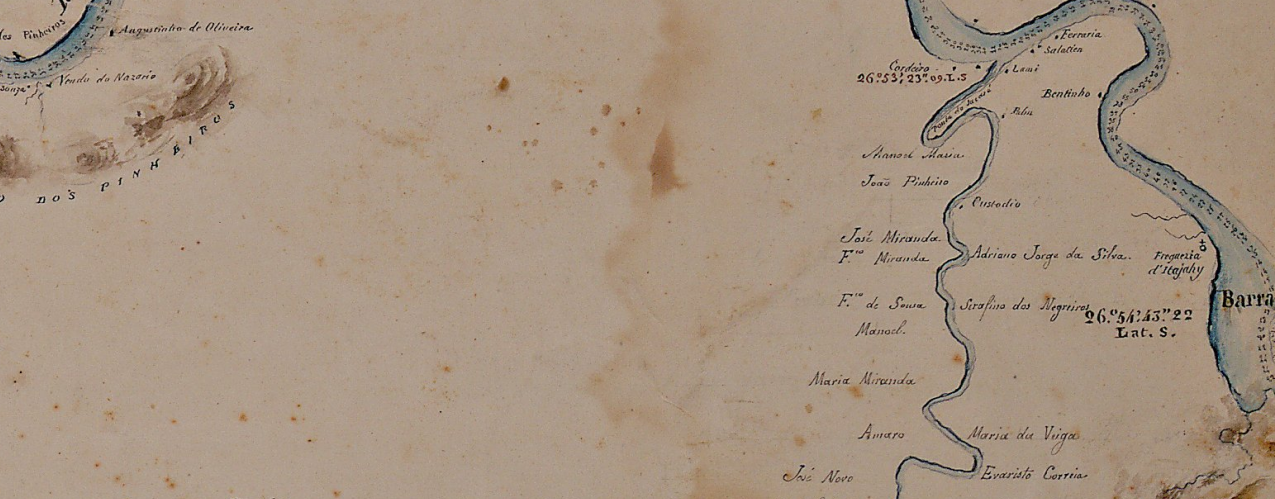 des Pinheiros
Augustinho de Oliveira
Venda do Nazario
DOS PINHEIROS
Ferraria
Salatien
Lami
Cordeiro
26.º53.'23."09.L.S
Bentinho
Manoel Maria
João Pinheiro
Custodio
José Miranda
F.co Miranda
Adriano Jorge da Silva.
Freguezia
d'Itajahy
F.co de Sousa
Serafino dos Negreiros
26.º54.'43."22
Lat. S.
Barra
Manoel.
Maria Miranda
Amaro
Maria da Veiga
José Novo
Evaristo Correia